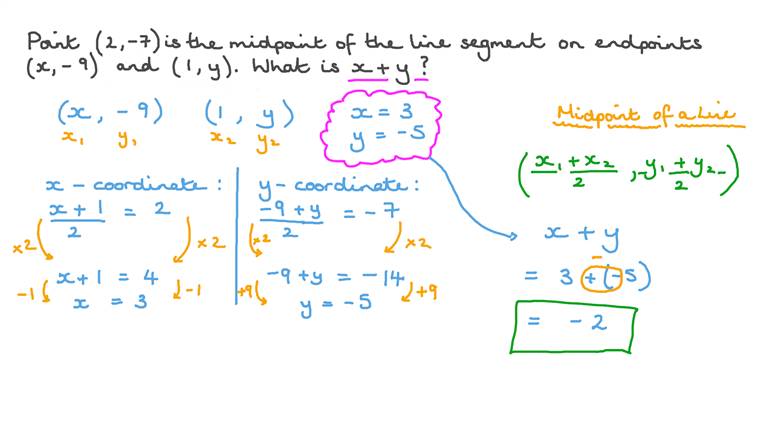 Point (2,-7) is the midpoint of the line segment on endpoints
(x,-9) and (1,y). What is x+y?
(x, -9) (1, y)
x₁ y₁ x₂ y₂
x = 3
y = -5
Midpoint of a Line
(x₁+x₂/2, y₁+y₂/2)
x-coordinate:
x+1/2 = 2
×2 ×2
x+1 = 4
-1 -1
x = 3
y-coordinate:
-9+y/2 = -7
×2 ×2
-9+y = -14
+9 +9
y = -5
x + y
-
= 3 + (-5)
= -2